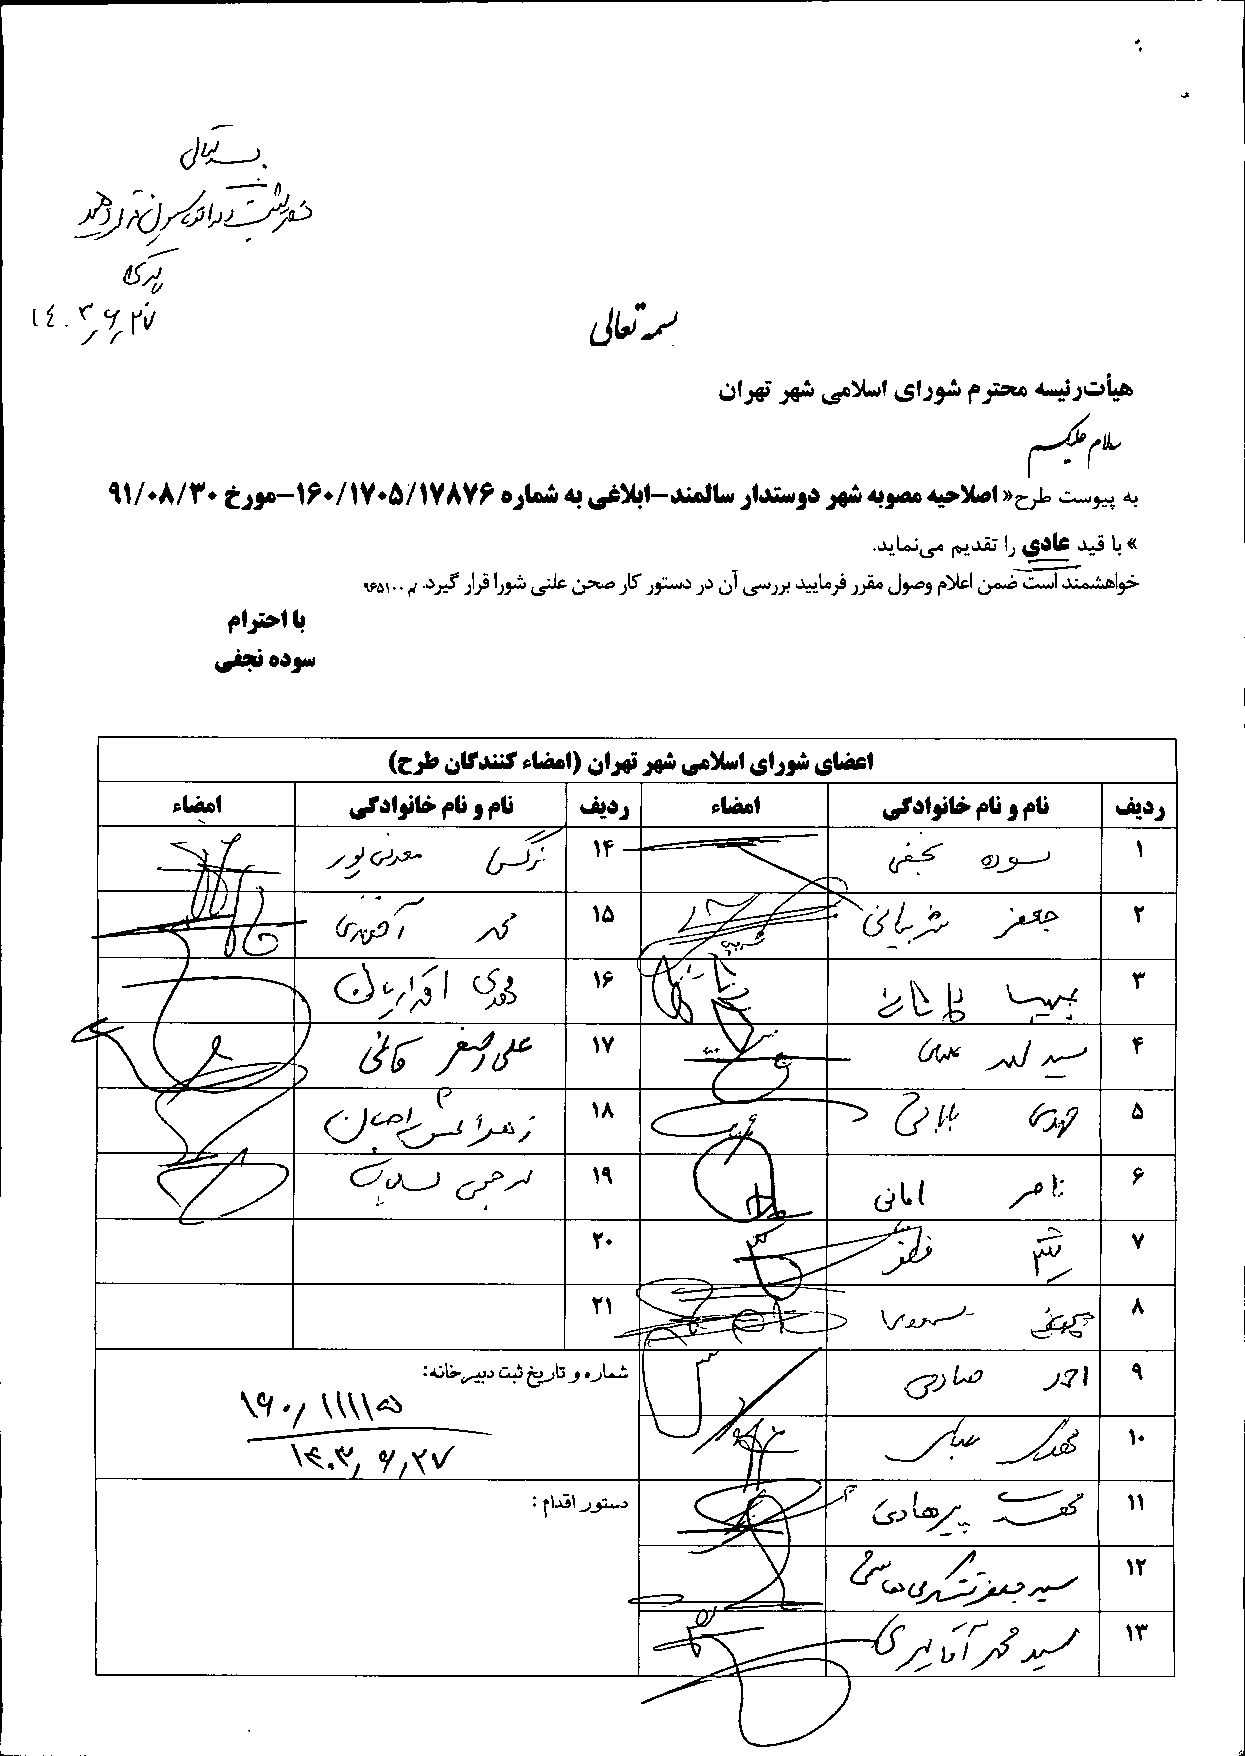 بسمه تعالی
۱۴۰۳/۶/۲۷
بسمه تعالی
هیأت‌رئیسه محترم شورای اسلامی شهر تهران
سلام علیکم
به پیوست طرح« اصلاحیه مصوبه شهر دوستدار سالمند-ابلاغی به شماره ۱۶۰/۱۷۰۵/۱۷۸۷۶-مورخ ۹۱/۰۸/۳۰
» با قید عادی را تقدیم می‌نماید.
خواهشمند است ضمن اعلام وصول مقرر فرمایید بررسی آن در دستور کار صحن علنی شورا قرار گیرد. م/۹۶۵۱۰۰
با احترام
سوده نجفی
اعضای شورای اسلامی شهر تهران (امضاء کنندگان طرح)
ردیف نام و نام خانوادگی امضاء ردیف نام و نام خانوادگی امضاء
۱ سوده نجفی ۱۴ نرگس معدنی پور
۲ جعفر شربیانی ۱۵ محمد آخوندی
۳ ۱۶ مهدی اقراریان
۴ سید احمد علوی ۱۷ علی اصغر قائمی
۵ مهدی بابائی ۱۸ زهرا شمس احسان
۶ ناصر امانی ۱۹
۷ ۲۰
۸ ۲۱
۹ احمد صادقی شماره و تاریخ ثبت دبیرخانه:
۱۶۰/۱۱۱۱۵
۱۰ مهدی عباسی
۱۴۰۳/۶/۲۷
۱۱ پیرهادی دستور اقدام :
۱۲ سید جعفر تشکری هاشمی
۱۳ سید محمد آقامیری